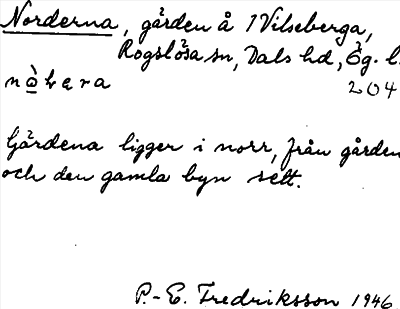 Norderna, gården å 1 Vilseberga,
Rogslösa sn, Dals hd, Ög. l.
204
Gårdena ligger i norr, från gården
och den gamla byn sett.
P.-E. Fredriksson 1946